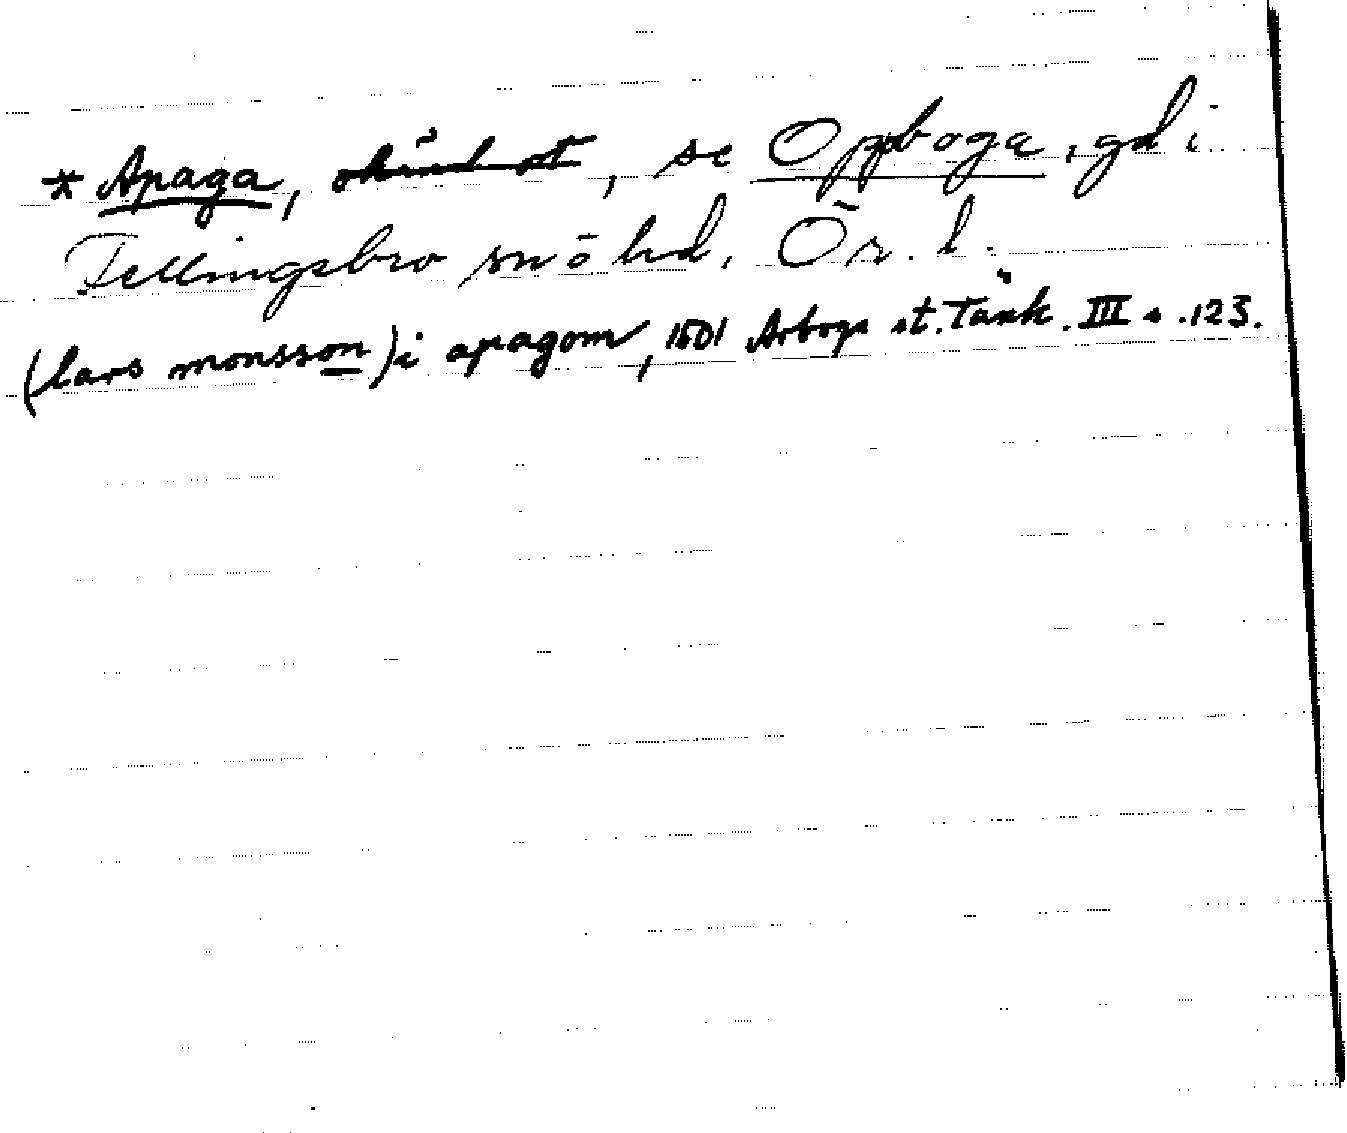 * Apaga, okänd ort, se Oppboga, gd i
Fellingsbro sn o hd, Ör. l.
(lars monsson) i apagom, 1501 Arboga st. Tänk. III s. 123.